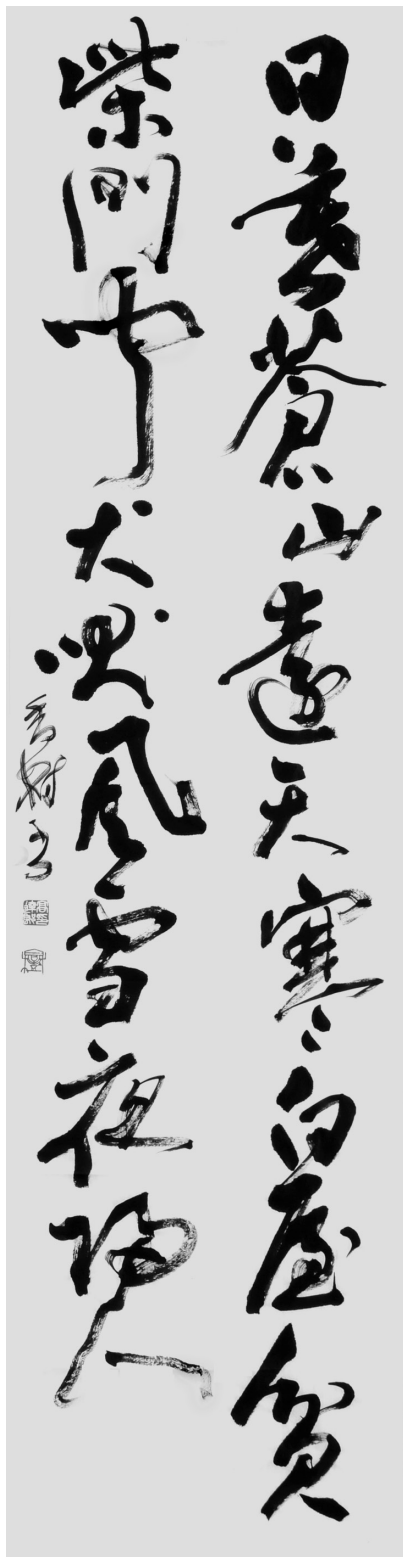 日暮蒼山遠天寒白屋貧
柴門聞犬吠風雪夜歸人
香樹書